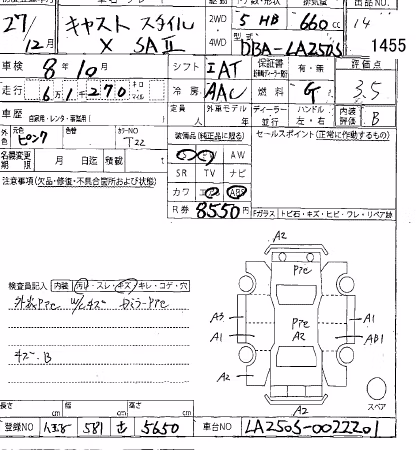 27/12月 キャスト スタイル X SAⅡ
2WD 4WD 5 HB 660 cc
型式 DBA-LA250S
14
1455
車検 8年10月
シフト IAT
保証書 有・無
評価点 3.5
走行 6万1千270 キロ マイル
冷房 AAC
燃料 G
車歴 自家用・レンタ・事業用
定員 人
外車モデル 年
ディーラー 並行
ハンドル 左・右
内装評価 B
外色 元色 ピンク 色替 カラーNO T22
装備品(純正品に限る)
AW
SR TV ナビ
カワ エアB ABS
セールスポイント(正常に作動するもの)
名義変更期限 月 日迄 積載 t
注意事項(欠品・修復・不具合箇所及び状態)
R券 8550円
Fガラス トビ石・キズ・ヒビ・ワレ・リペア跡
検査員記入 内装 汚レ・スレ・キズ・キレ・コゲ・穴
キズ・B
A2
Pte
A3
Pte
A2
A1
A1
A2
A2
スペア
長さ cm 幅 cm 高さ cm
登録NO 581 せ 5650
車台NO LA250S-0022201